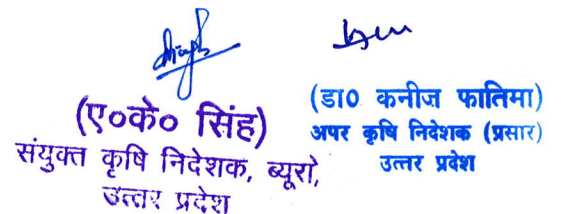 (ए०के० सिंह)
संयुक्त कृषि निदेशक, ब्यूरो,
उत्तर प्रदेश
(डा0 कनीज फातिमा)
अपर कृषि निदेशक (प्रसार)
उत्तर प्रदेश